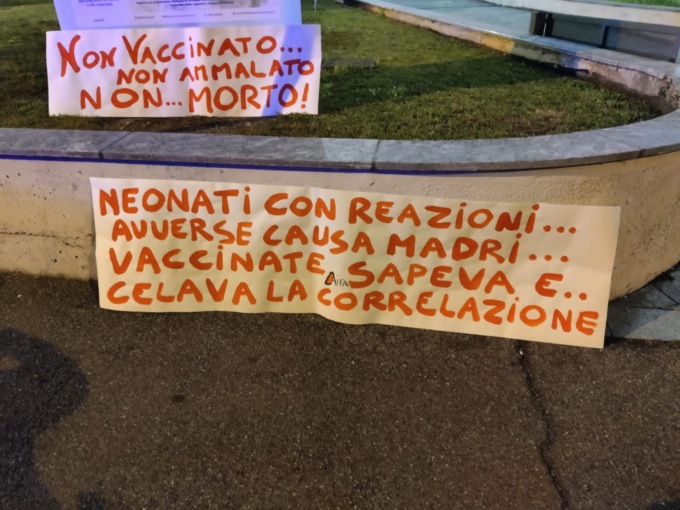 NON VACCINATO...
NON AMMALATO
NON... MORTO!
NEONATI CON REAZIONI...
AVVERSE CAUSA MADRI...
VACCINATE AIFA SAPEVA E..
CELAVA LA CORRELAZIONE